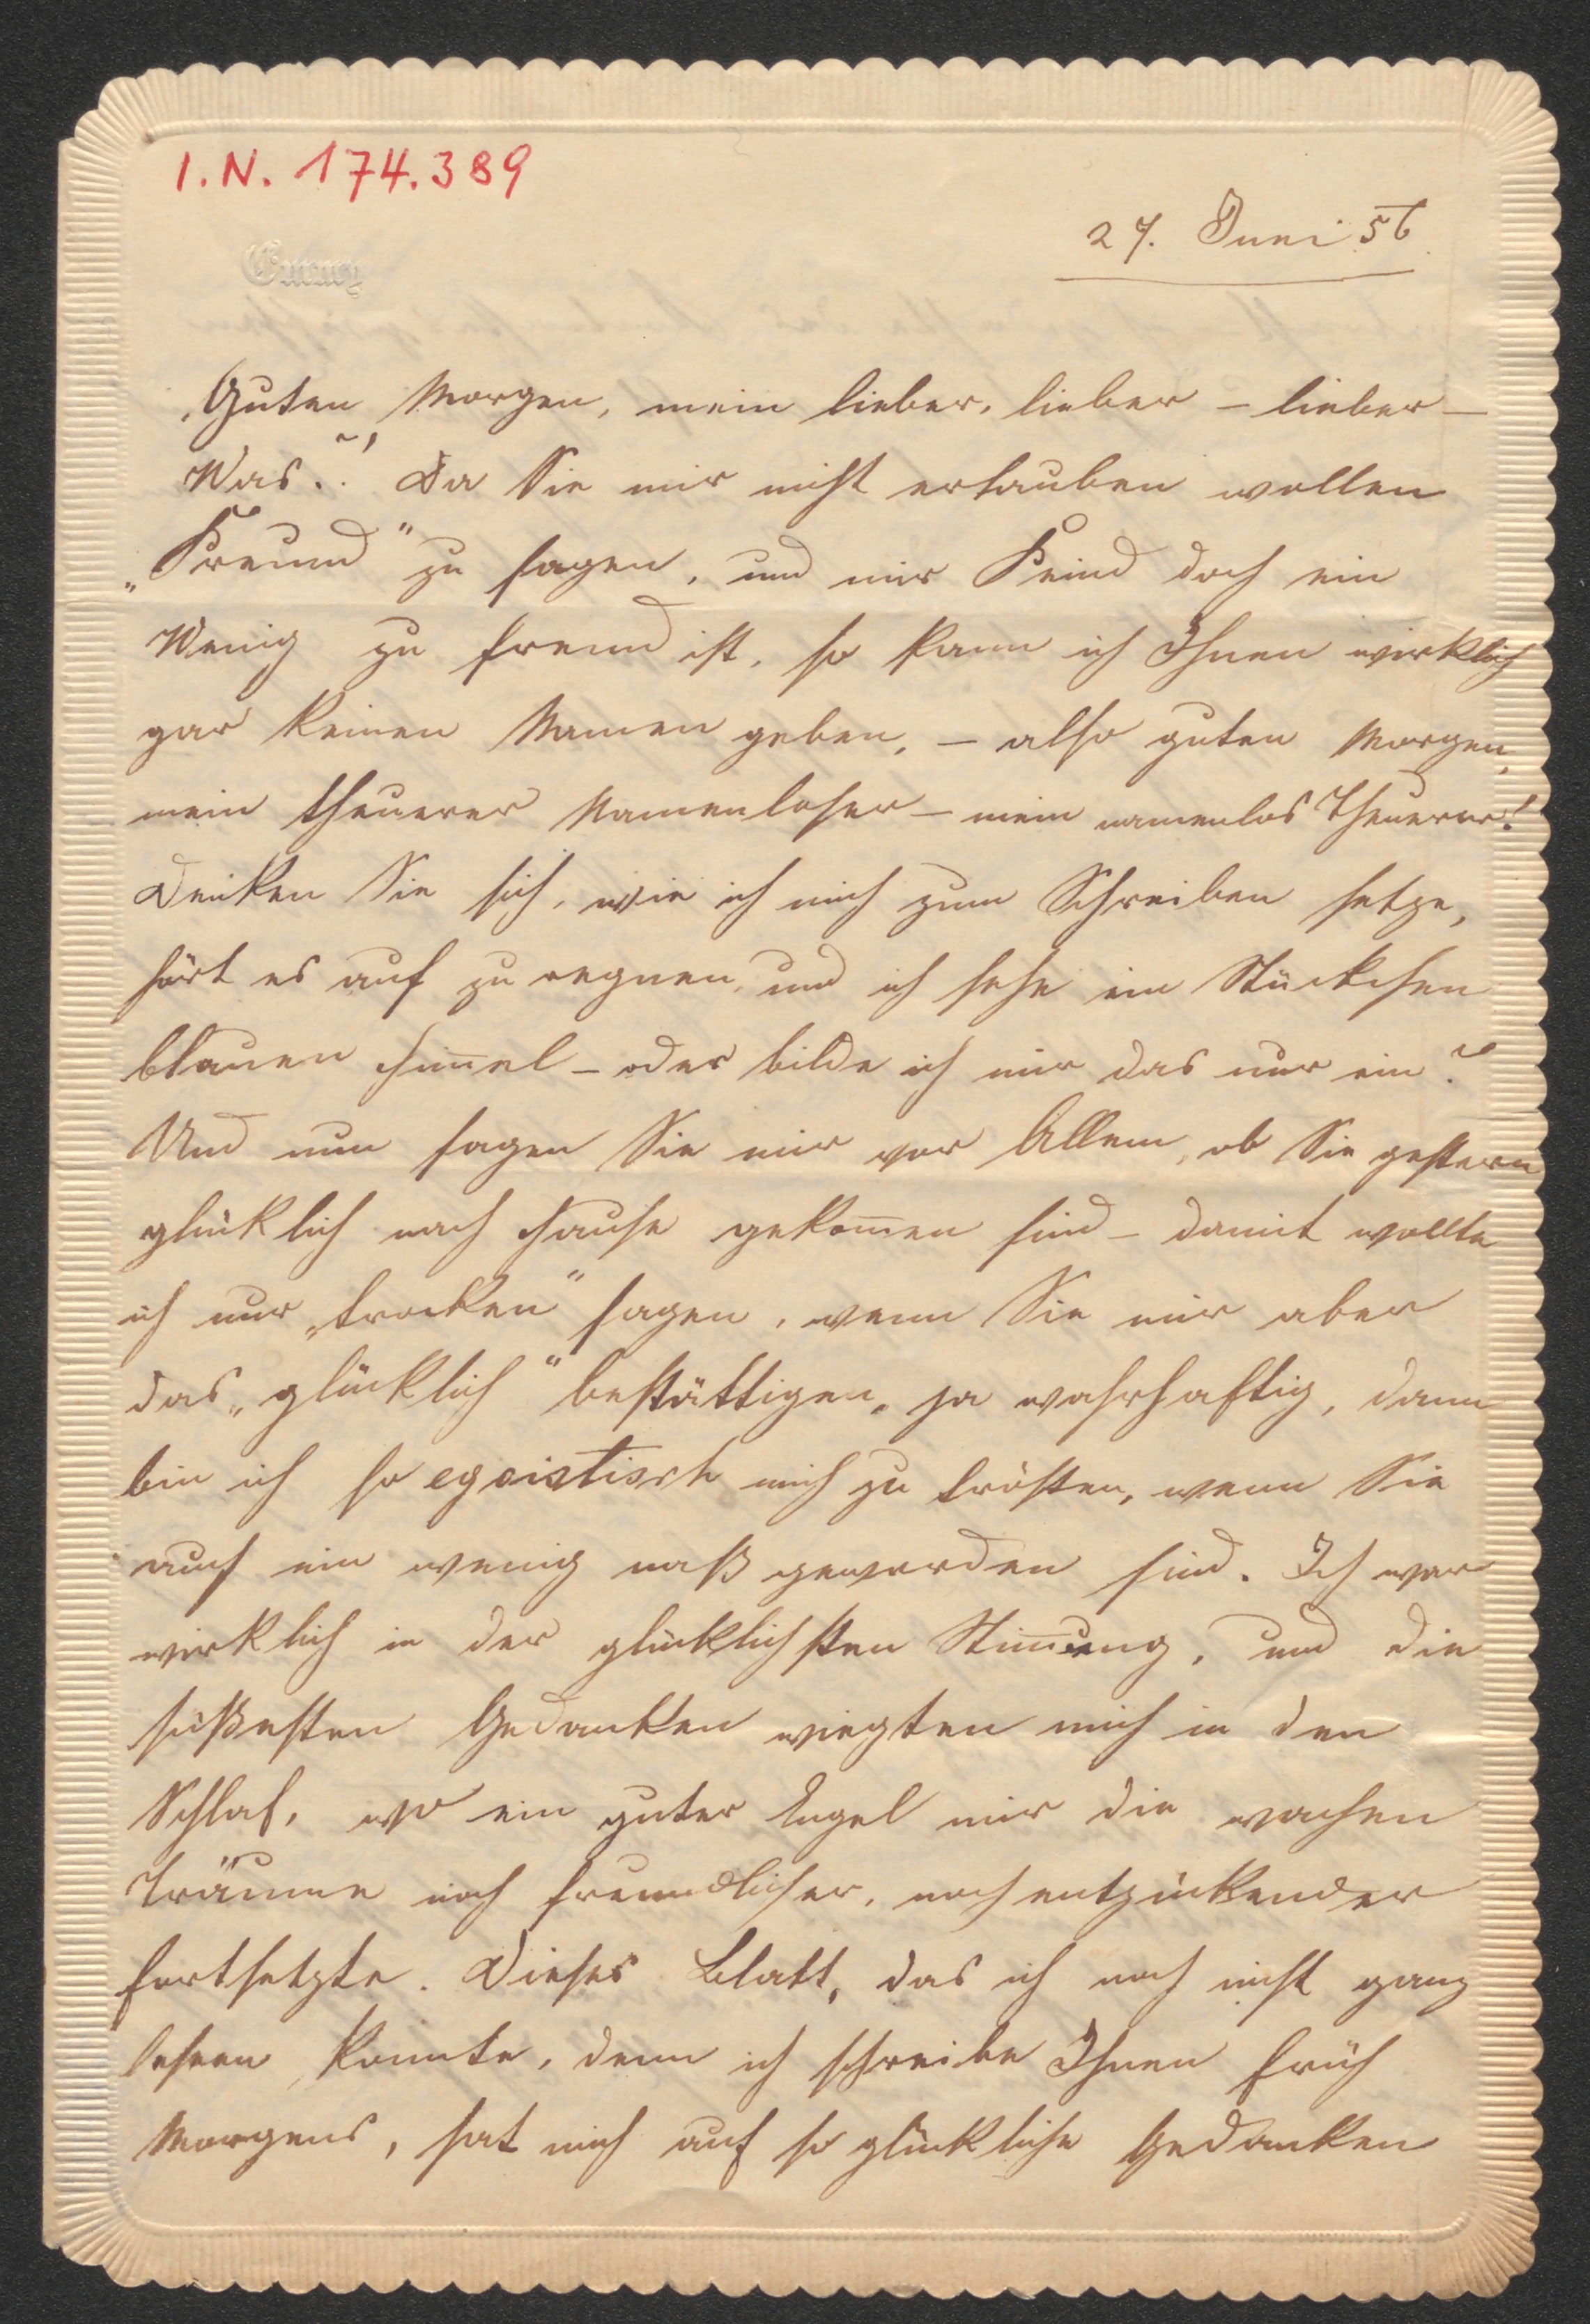 I.N. 174.389
27. Juni 56
„Guten Morgen, mein lieber, lieber – lieber –
Was?“ Da Sie mir nicht erlauben wollen
„Freund“ zu sagen, und mir Feind doch ein
Wenig zu fremd ist, so kann ich Ihnen wirklich
gar keinen Namen geben, – also guten Morgen,
mein theuerer Namenloser – mein namenlos Theuerer!
Denken Sie sich, wie ich mich zum Schreiben setze,
hört es auf zu regnen, und ich sehe ein Stückchen
blauen Him̅el – oder bilde ich mir das nur ein?
Und nun sagen Sie mir vor Allem, ob Sie gestern
glücklich nach Hause gekom̅en sind – damit wollte
ich nur „trocken“ sagen, wenn Sie mir aber
das „glücklich“ bestättigen, ja wahrhaftig, dann
bin ich so egoistisch mich zu trösten, wenn Sie
auch ein wenig naß geworden sind. Ich war
wirklich in der glücklichsten Stim̅ung, und die
süßesten Gedanken wiegten mich in den
Schlaf, wo ein guter Engel mir die wachen
Träume noch freundlicher, noch entzückender
fortsetzte. Dieses Blatt, das ich noch nicht ganz
lesen konnte, denn ich schreibe Ihnen früh
Morgens, hat mich auf so glückliche Gedanken